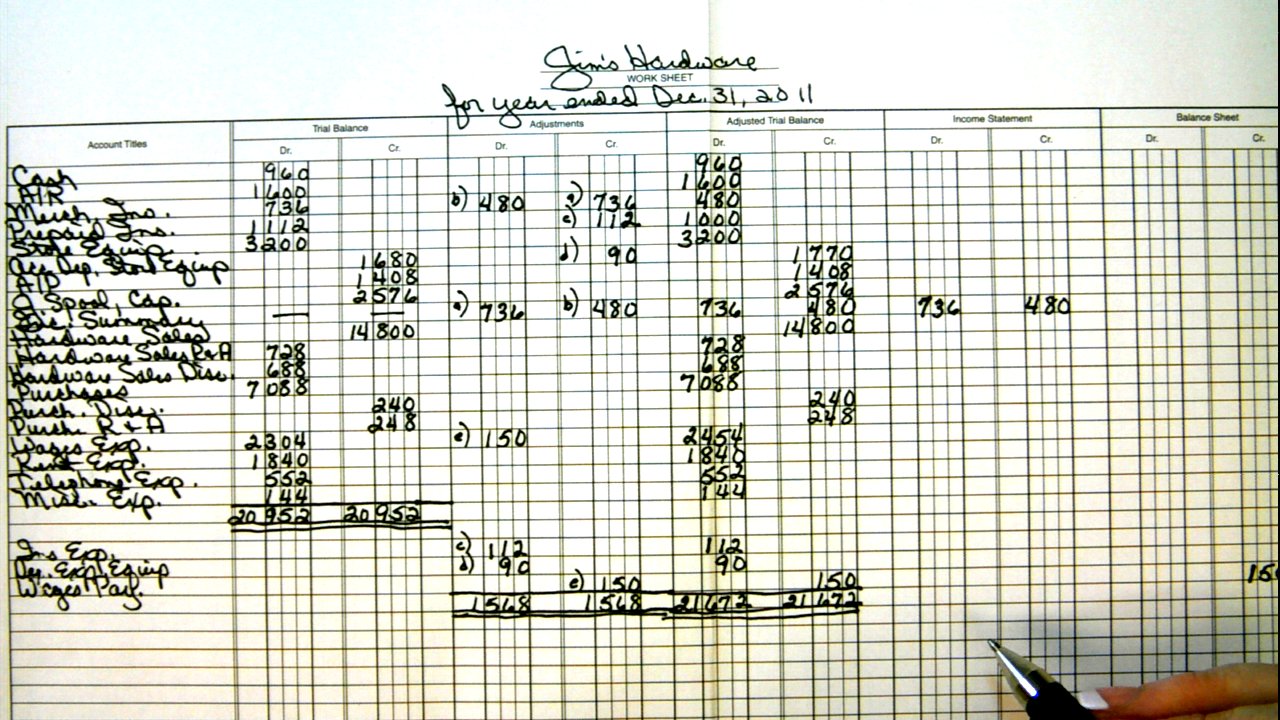 Jim's Hardware
WORK SHEET
for year ended Dec. 31, 2011
Account Titles Trial Balance Adjustments Adjusted Trial Balance Income Statement Balance Sheet
Dr. Cr. Dr. Cr. Dr. Cr. Dr. Cr. Dr. Cr.
Cash 960 960
A/R 1600 1600
Merch. Inv. 736 b) 480 a) 736 480
Prepaid Ins. 1112 c) 112 1000
Store Equip. 3200 3200
Acc. Dep. Store Equip 1680 d) 90 1770
A/P 1408 1408
J. Spool, Cap. 2576 2576
Inc. Summary — — a) 736 b) 480 736 480 736 480
Hardware Sales 14800 14800
Hardware Sales R&A 728 728
Hardware Sales Disc. 688 688
Purchases 7088 7088
Purch. Disc. 240 240
Purch. R & A 248 248
Wages Exp. 2304 e) 150 2454
Rent Exp. 1840 1840
Telephone Exp. 552 552
Misc. Exp. 144 144
20952 20952
Ins Exp. c) 112 112
Dep. Exp Equip d) 90 90
Wages Pay. e) 150 150 150
1568 1568 21672 21672